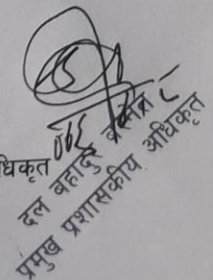 धिकृत
दल बहादुर
प्रमुख प्रशासकीय अधिकृत